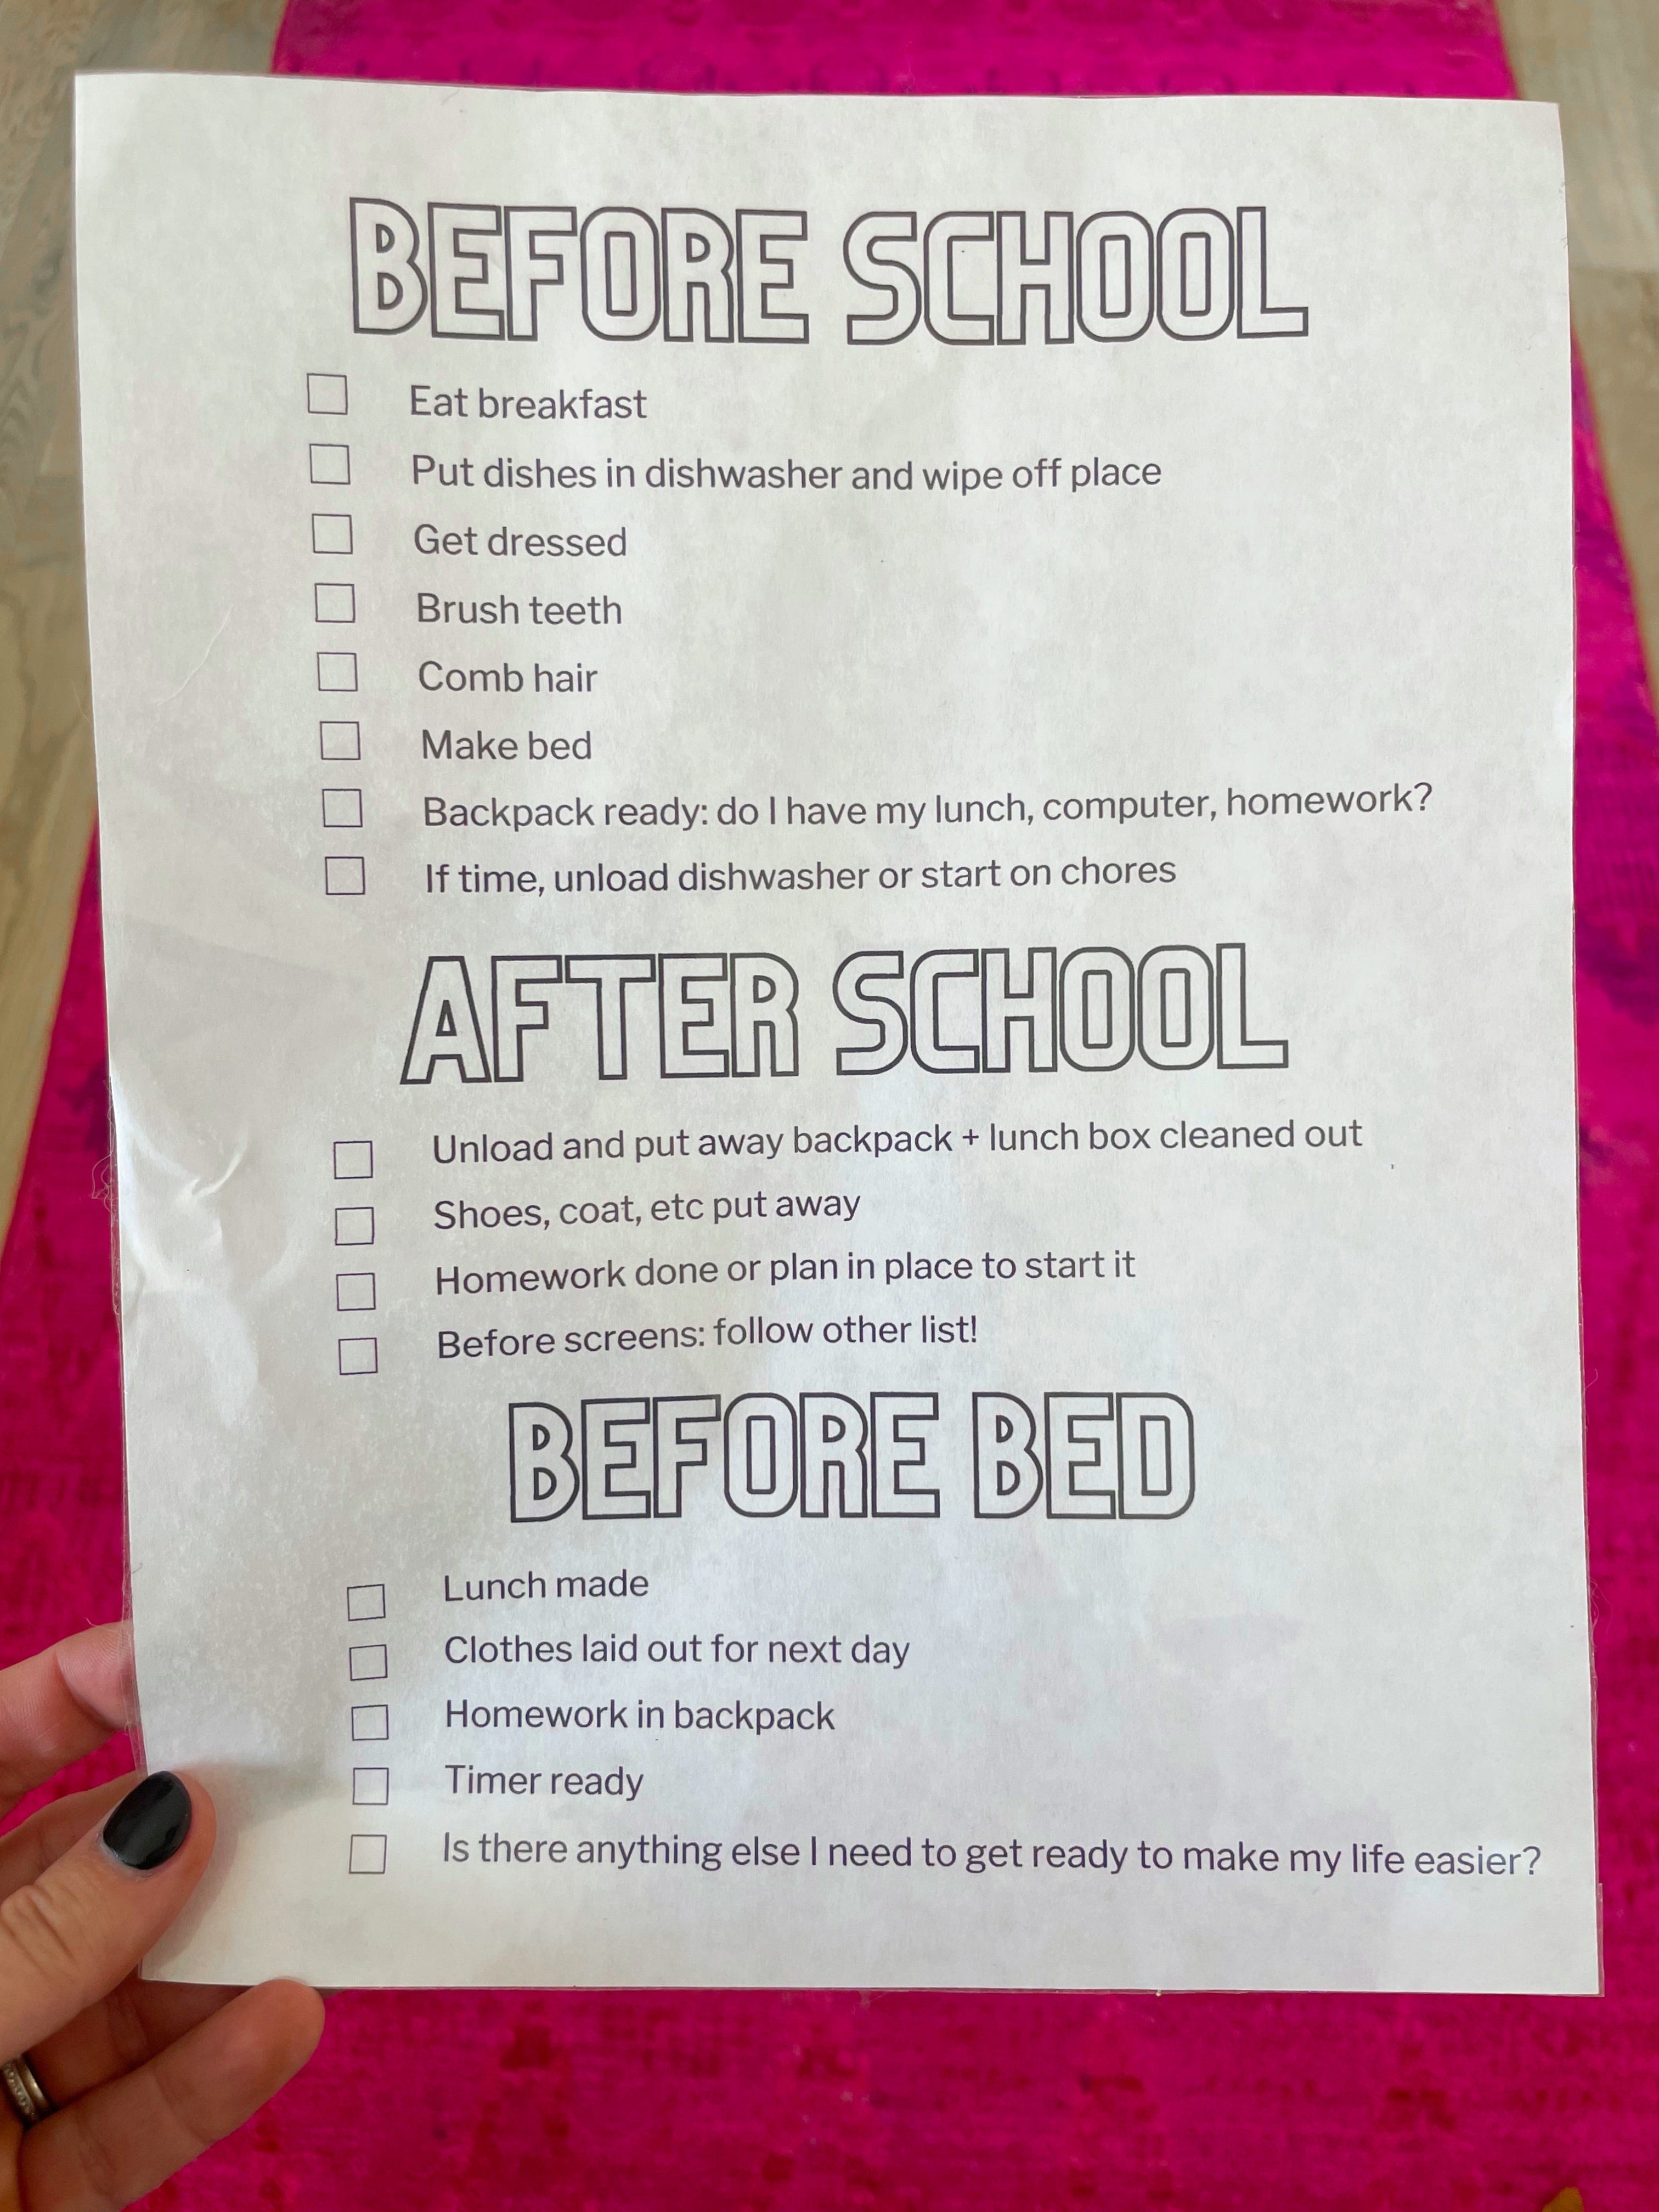 BEFORE SCHOOL
Eat breakfast
Put dishes in dishwasher and wipe off place
Get dressed
Brush teeth
Comb hair
Make bed
Backpack ready: do I have my lunch, computer, homework?
If time, unload dishwasher or start on chores
AFTER SCHOOL
Unload and put away backpack + lunch box cleaned out
Shoes, coat, etc put away
Homework done or plan in place to start it
Before screens: follow other list!
BEFORE BED
Lunch made
Clothes laid out for next day
Homework in backpack
Timer ready
Is there anything else I need to get ready to make my life easier?